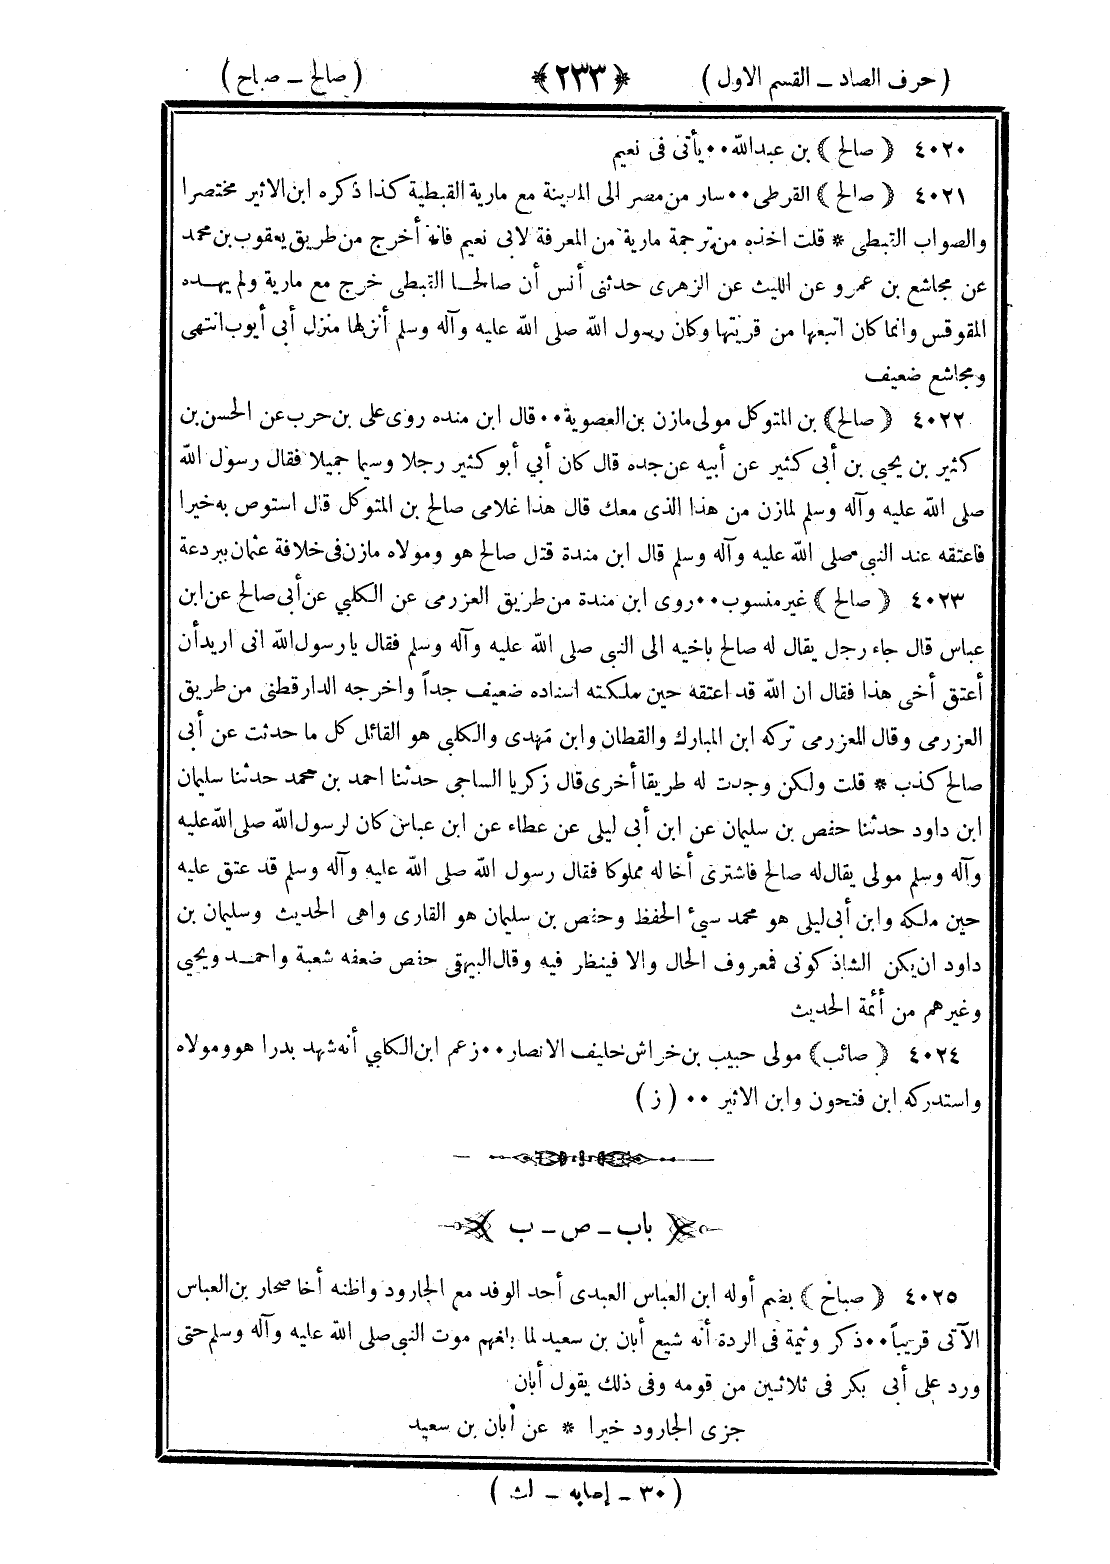 ( حرف الصاد ـ القسم الاول ) ﴿ ٢٣٣ ﴾ ( صالح ـ صباح )
٤٠٢٠ ﴿ صالح ﴾ بن عبدالله ٠٠ يأتى فى نعيم
٤٠٢١ ﴿ صالح ﴾ القرطى ٠٠ سار من مصر الى المدينة مع مارية القبطية كذا ذكره ابن الاثير مختصرا
والصواب القبطى * قلت اخذه من ترجمة مارية من المعرفة لابى نعيم فانه أخرج من طريق يعقوب بن محمد
عن مجاشع بن عمرو عن الليث عن الزهرى حدثنى أنس أن صالحا القبطى خرج مع مارية ولم يهده
المقوقس وانما كان اتبعها من قريتها وكان رسول الله صلى الله عليه وآله وسلم أنزلها منزل أبى أيوب انتهى
ومجاشع ضعيف
٤٠٢٢ ﴿ صالح ﴾ بن المتوكل مولى مازن بن العصوية ٠٠ قال ابن منده روى على بن حرب عن الحسن بن
كثير بن يحيى بن أبى كثير عن أبيه عن جده قال كان أبي أبو كثير رجلا وسيما جميلا فقال رسول الله
صلى الله عليه وآله وسلم لمازن من هذا الذى معك قال هذا غلامى صالح بن المتوكل قال استوص به خيرا
فاعتقه عند النبي صلى الله عليه وآله وسلم قال ابن مندة قتل صالح هو ومولاه مازن فى خلافة عثمان ببردعة
٤٠٢٣ ﴿ صالح ﴾ غير منسوب ٠٠ روى ابن مندة من طريق العزرمى عن الكلبي عن أبى صالح عن ابن
عباس قال جاء رجل يقال له صالح باخيه الى النبي صلى الله عليه وآله وسلم فقال يا رسول الله انى اريد أن
أعتق أخى هذا فقال ان الله قد اعتقه حين ملكته اسناده ضعيف جداً واخرجه الدارقطنى من طريق
العزرمى وقال العزرمى تركه ابن المبارك والقطان وابن مهدى والكلبى هو القائل كل ما حدثت عن أبى
صالح كذب * قلت ولكن وجدت له طريقا أخرى قال زكريا الساجى حدثنا احمد بن محمد حدثنا سليمان
ابن داود حدثنا حفص بن سليمان عن ابن أبى ليلى عن عطاء عن ابن عباس كان لرسول الله صلى الله عليه
وآله وسلم مولى يقال له صالح فاشترى أخا له مملوكا فقال رسول الله صلى الله عليه وآله وسلم قد عتق عليه
حين ملكه وابن أبى ليلى هو محمد سيئ الحفظ وحفص بن سليمان هو القارى واهى الحديث وسليمان بن
داود ان يكن الشاذكونى فمعروف الحال والا فينظر فيه وقال البيهقى حفص ضعفه شعبة واحمد ويحيي
وغيرهم من أئمة الحديث
٤٠٢٤ ﴿ صائب ﴾ مولى حبيب بن خراش حليف الانصار ٠٠ زعم ابن الكلبي أنه شهد بدرا هو ومولاه
واستدركه ابن فتحون وابن الاثير ٠٠ ( ز )
باب ـ ص ـ ب
٤٠٢٥ ﴿ صباح ﴾ بضم أوله ابن العباس العبدى أحد الوفد مع الجارود واظنه أخا صحار بن العباس
الآتى قريباً ٠٠ ذكر وثيمة فى الردة أنه شيع أبان بن سعيد لما بلغهم موت النبي صلى الله عليه وآله وسلم حتى
ورد على أبى بكر فى ثلاثين من قومه وفى ذلك يقول أبان
جزى الجارود خيرا * عن أبان بن سعيد
( ٣٠ ـ إصابه ـ لث )